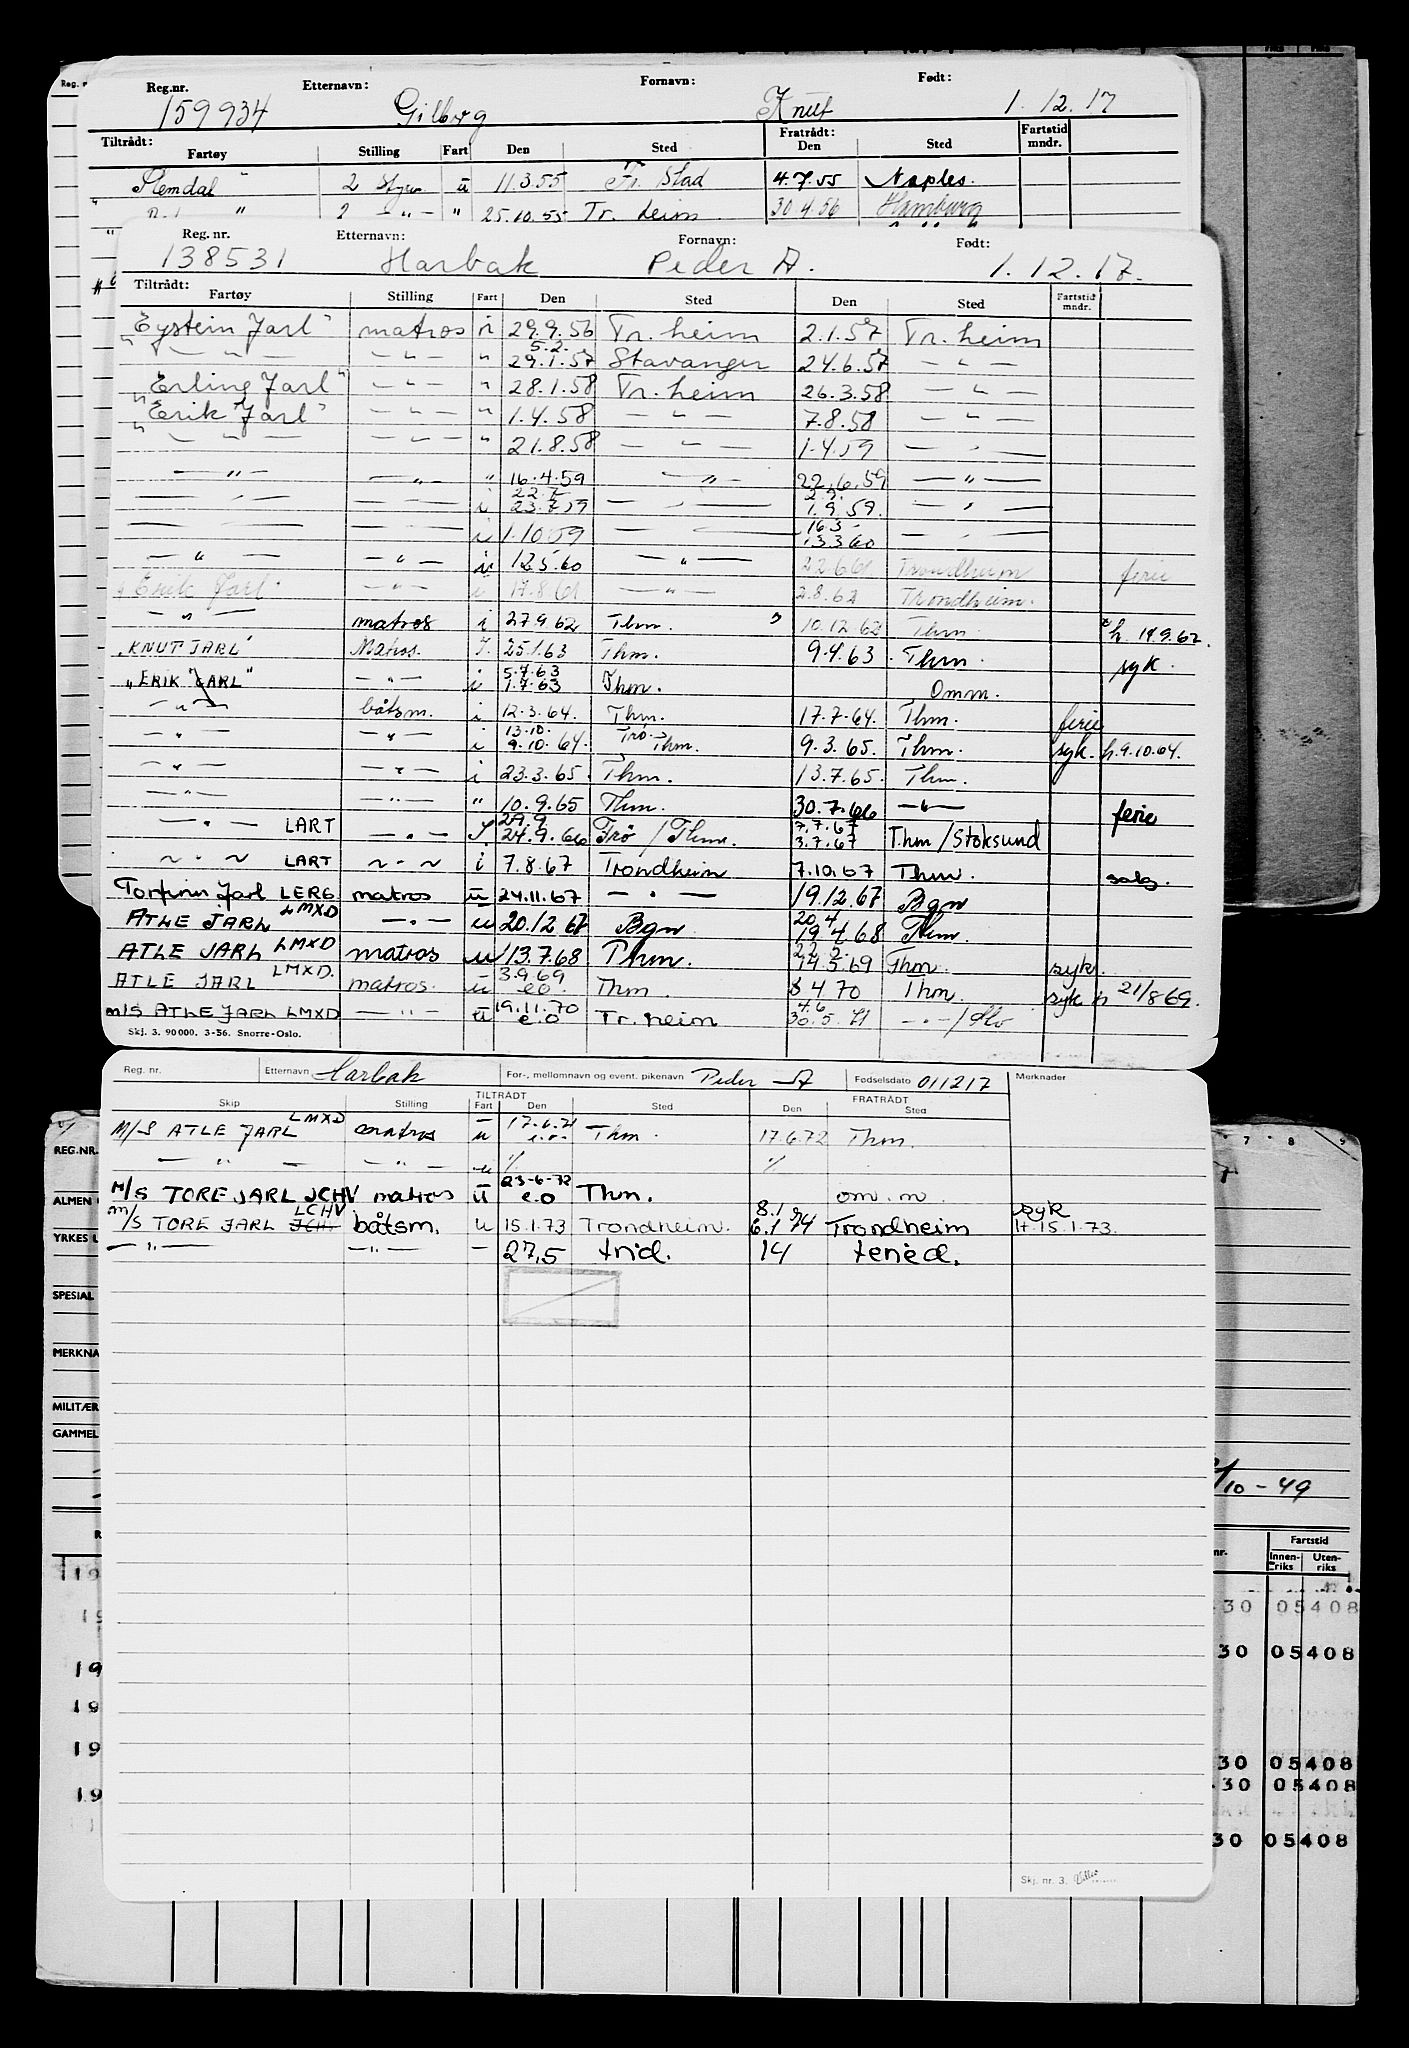 Reg.nr. Etternavn: Fornavn: Født:
159934 Gilberg Knut 1.12.17
Tiltrådt: Fratrådt: Fartstid mndr.
Fartøy Stilling Fart Den Sted Den Sted
2 Styrm ü 11.3.55 Fr. Stad 4.7.55 Naples.
" 2 -"- " 25.10.55 Tr. heim 30 4.56 Hamburg
Reg. nr. Etternavn: Fornavn: Født:
138531 Harbak Peder A. 1.12.17.
Tiltrådt:
Fartøy Stilling Fart Den Sted Den Sted Fartstid mndr.
"Eystein Jarl" matros i 29.9.56 Tr. heim 2.1.57 Tr. heim
" -"- -"- " 5.2. 29.1.57 Stavanger 24.6.57 -"-
"Erling Jarl" -"- " 28.1.58 Tr. heim 26.3.58 -"-
"Erik Jarl" -"- " 1.4.58 -"- 7.8.58 -"-
" -"- -"- " 21.8.58 -"- 1.4.59 -"-
-"- -"- " 16.4.59 -"- 22.6.59 -"-
-"- -"- i 22.7. 23.7.59 -"- 2.9. 1.9.59. -"-
-"- -"- i 1.10.59 -"- 16.3 - 13.3.60 -"-
-"- -"- i 12.5.60 -"- 22.6.61 Trondheim ferie
"Erik Jarl" -"- i 17.8.61 -"- 2.8.62 Trondheim.
-"- matros i 27.9.62 Thm. 10.12.62 Thm. h. 19.9.62.
"KNUT JARL" Matros. I. 25.1.63 Thm. 9.4.63 Thm. syk.
"ERIK JARL" -"- i 5.7.63 1.7.63 Thm. Omm.
-"- båtsm. i 12.3.64. Thm. 17.7.64. Thm. ferie
-"- -"- i 13.10. 9.10.64. Trø. Thm. 9.3.65. Thm. syk. h.9.10.64.
-"- -"- i 23.3.65. Thm. 13.7.65. Thm.
-"- -"- " 10.9.65 Thm. 30.7.66 -"- ferie
-"- LART -"- I. 29.9 24.9.66 Trø / Thm. 7.7.67 3.7.67 Thm/Stoksund
-"- LART -"- i 7.8.67 Trondheim 7.10.67 Thm. salg.
Torfinn Jarl LERG matros ü 24.11.67 -"- 19.12.67 Bgn
ATLE JARL LMXD -"- u 20.12.67 Bgn 20.4 19.4.68 Thm.
ATLE JARL LMXD matros u 13.7.68 Thm. Thm. syk.
ATLE JARL LMXD. matros. ü 3.9.69 e.o Thm. 8 4 70 Thm. syk h 21/8 69.
m/s ATLE JARL LMXD -"- ü 19.11.70 e.o Tr. heim 4.6 30.5.71 -"-/
Skj. 3. 90 000. 3-56. Snorre-Oslo.
Reg. nr. Etternavn Harbak For-, mellomnavn og event. pikenavn Peder A Fødselsdato 011217 Merknader
TILTRÅDT FRATRÅDT
Skip Stilling Fart Den Sted Den Sted
M/S ATLE JARL LMXD matros ü 17.6.71 e.o. Thm. 17.6.72 Thm.
-"- -"- u
M/S TORE JARL JCHV matros ü 23-6-72 e.o Thm. om.m.
m/S TORE JARL JCH. LCHV båtsm. u 15.1.73 Trondheim. 8.1 6.1.74 Trondheim syk H.15.1.73.
-"- -"- - 27,5 tnid. 14 feried.
Skj. nr. 3.
REG.NR.
ALMEN
YRKES
SPESIAL
MERKNA
MILITÆR
GAMMEL
/10-49
nr. Fartstid
Innen-riks Uten-riks
30 05408
30 05408
30 05408
30 05408
30 05408